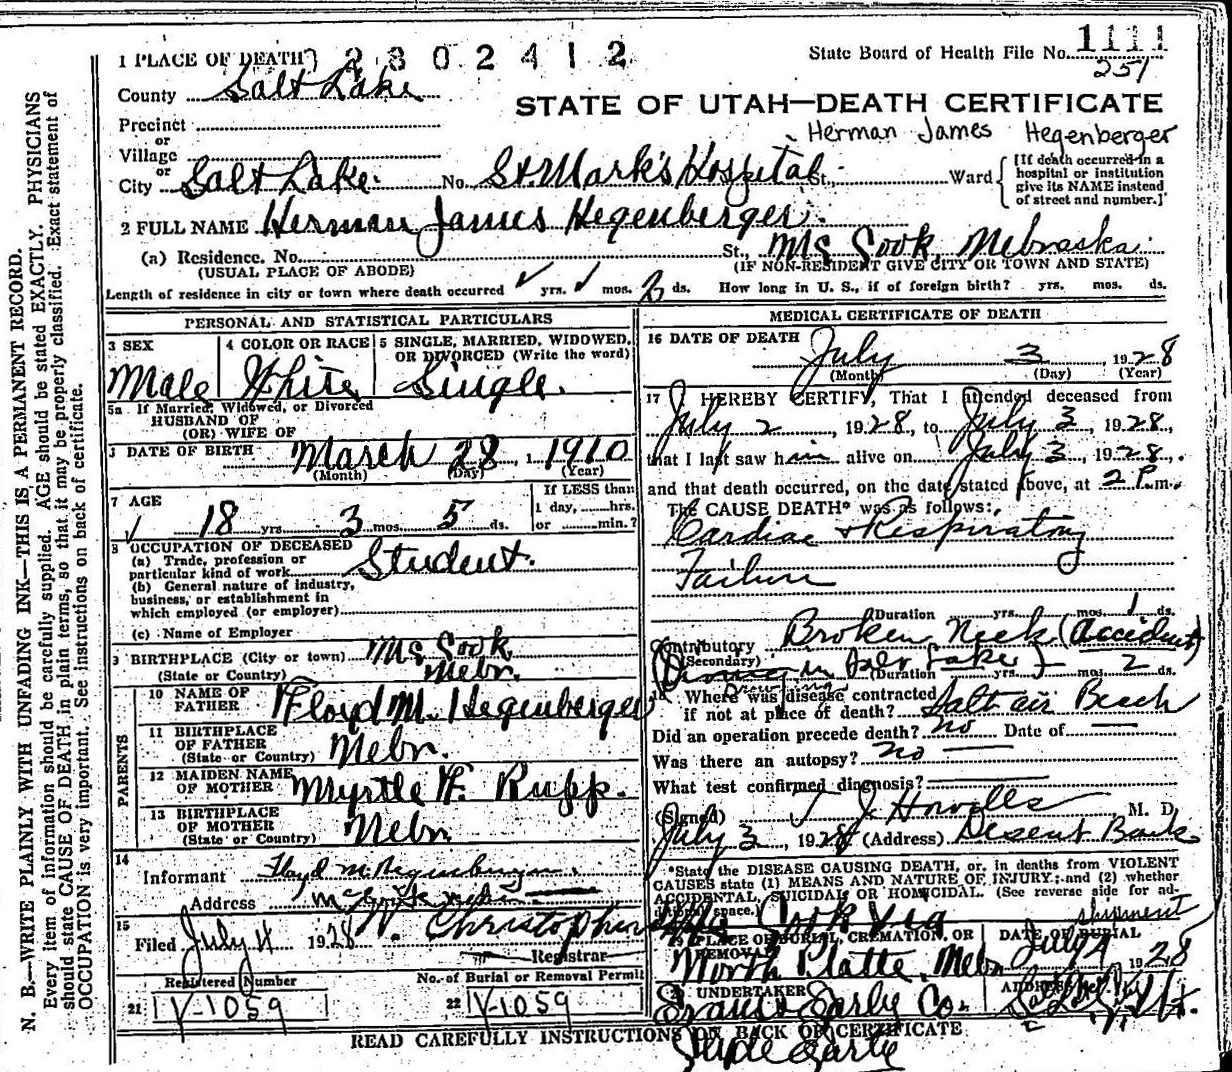 1 PLACE OF DEATH 2 8 0 2 4 1 2
State Board of Health File No. 1111
251
County Salt Lake
STATE OF UTAH—DEATH CERTIFICATE
Precinct
Herman James Hegenberger
or
Village
or
City Salt Lake No. St. Mark's Hospital St., Ward
[If death occurred in a
hospital or institution
give its NAME instead
of street and number.]
2 FULL NAME Herman James Hegenberger.
(a) Residence. No. St., Mc Cook, Nebraska
(USUAL PLACE OF ABODE) (IF NON-RESIDENT GIVE CITY OR TOWN AND STATE)
Length of residence in city or town where death occurred yrs. mos. 2 ds. How long in U. S., if of foreign birth? yrs. mos. ds.
PERSONAL AND STATISTICAL PARTICULARS
3 SEX
Male
4 COLOR OR RACE
White
5 SINGLE, MARRIED, WIDOWED,
OR DIVORCED (Write the word)
Single.
5a If Married, Widowed, or Divorced
HUSBAND OF
(OR) WIFE OF
DATE OF BIRTH March 28 1910
(Month) (Day) (Year)
7 AGE
18 yrs 3 mos. 5 ds.
If LESS than
1 day, hrs.
or min.?
8 OCCUPATION OF DECEASED
(a) Trade, profession or
particular kind of work Student.
(b) General nature of industry,
business, or establishment in
which employed (or employer)
(c) Name of Employer
9 BIRTHPLACE (City or town) Mc Cook,
(State or Country) Nebr.
PARENTS
10 NAME OF
FATHER Floyd M. Hegenberger
11 BIRTHPLACE
OF FATHER
(State or Country) Nebr.
12 MAIDEN NAME
OF MOTHER Myrtle F. Rupp.
13 BIRTHPLACE
OF MOTHER
(State or Country) Nebr.
14
Informant Floyd M Hegenberger
Address McCook Nebr.
15
Filed July 4 1928 W. Christopherson
Registrar
Registered Number
21 V-1059
No. of Burial or Removal Permit
22 V-1059
MEDICAL CERTIFICATE OF DEATH
16 DATE OF DEATH
July 3, 1928
(Month) (Day) (Year)
17 I HEREBY CERTIFY, That I attended deceased from
July 2, 1928, to July 3, 1928,
that I last saw him alive on July 3, 1928,
and that death occurred, on the date stated above, at 2 P.m.
The CAUSE DEATH* was as follows:
Cardiac & Respiratory
Failure
(Duration yrs. mos. 1 ds.
Contributory Broken Neck (Accident)
(Secondary)
(Diving in Salt Lake) (Duration mos. 2 ds.
18 Where was disease contracted
if not at place of death? Saltair Beach
Did an operation precede death? no Date of
Was there an autopsy? no
What test confirmed diagnosis?
(Signed) J. J. Howells M. D.
July 3, 1928 (Address) Deseret Bank
*State the DISEASE CAUSING DEATH, or, in deaths from VIOLENT
CAUSES state (1) MEANS AND NATURE OF INJURY; and (2) whether
ACCIDENTAL, SUICIDAL OR HOMICIDAL. (See reverse side for ad-
ditional space.)
Mc Cook via shipment
19 PLACE OF BURIAL, CREMATION, OR
REMOVAL
North Platte, Nebr
DATE OF BURIAL
July 4 1928
UNDERTAKER
ADDRESS
Early Co.
Clyde Early
READ CAREFULLY INSTRUCTIONS ON BACK OF CERTIFICATE
N. B.—WRITE PLAINLY WITH UNFADING INK—THIS IS A PERMANENT RECORD.
Every item of information should be carefully supplied. AGE should be stated EXACTLY. PHYSICIANS
should state CAUSE OF DEATH in plain terms, so that it may be properly classified. Exact statement of
OCCUPATION is very important. See instructions on back of certificate.